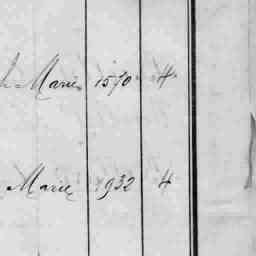 Marie 1570 4
Marie 1932 4